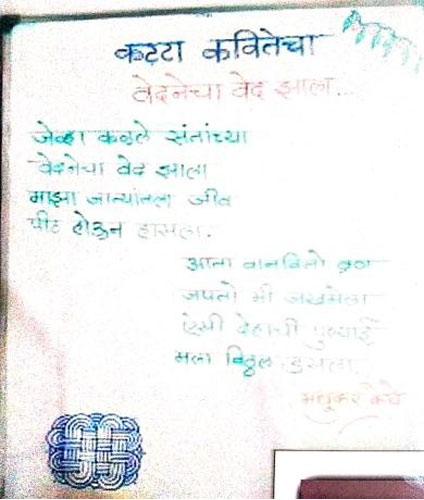 कट्टा कवितेचा
वेदनेचा वेद झाला...
जेव्हा कळले संतांच्या
वेदनेचा वेद झाला
माझा जात्यांतला जीव
पीठ होऊन हासला.
आता वानवितो व्रण
जपतो मी जखमेला
ऐसी देहाची पुण्याई
मला विठ्ठल डसला.
मधुकर केचे